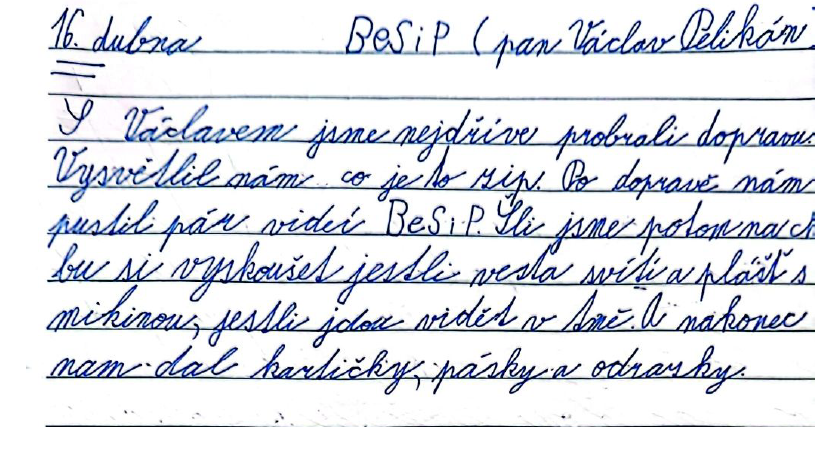 16. dubna BeSiP (pan Václav Pelikán)
S Václavem jsme nejdříve probrali dopravu.
Vysvětlil nám co je to zip. Po dopravě nám
pustil pár videí BeSiP. Šli jsme potom na ch
bu si vyskoušet jestli vesta svítí a plášť s
mikinou, jestli jdou vidět v tmě. A nakonec
nam dal kartičky, pásky a odrazky.